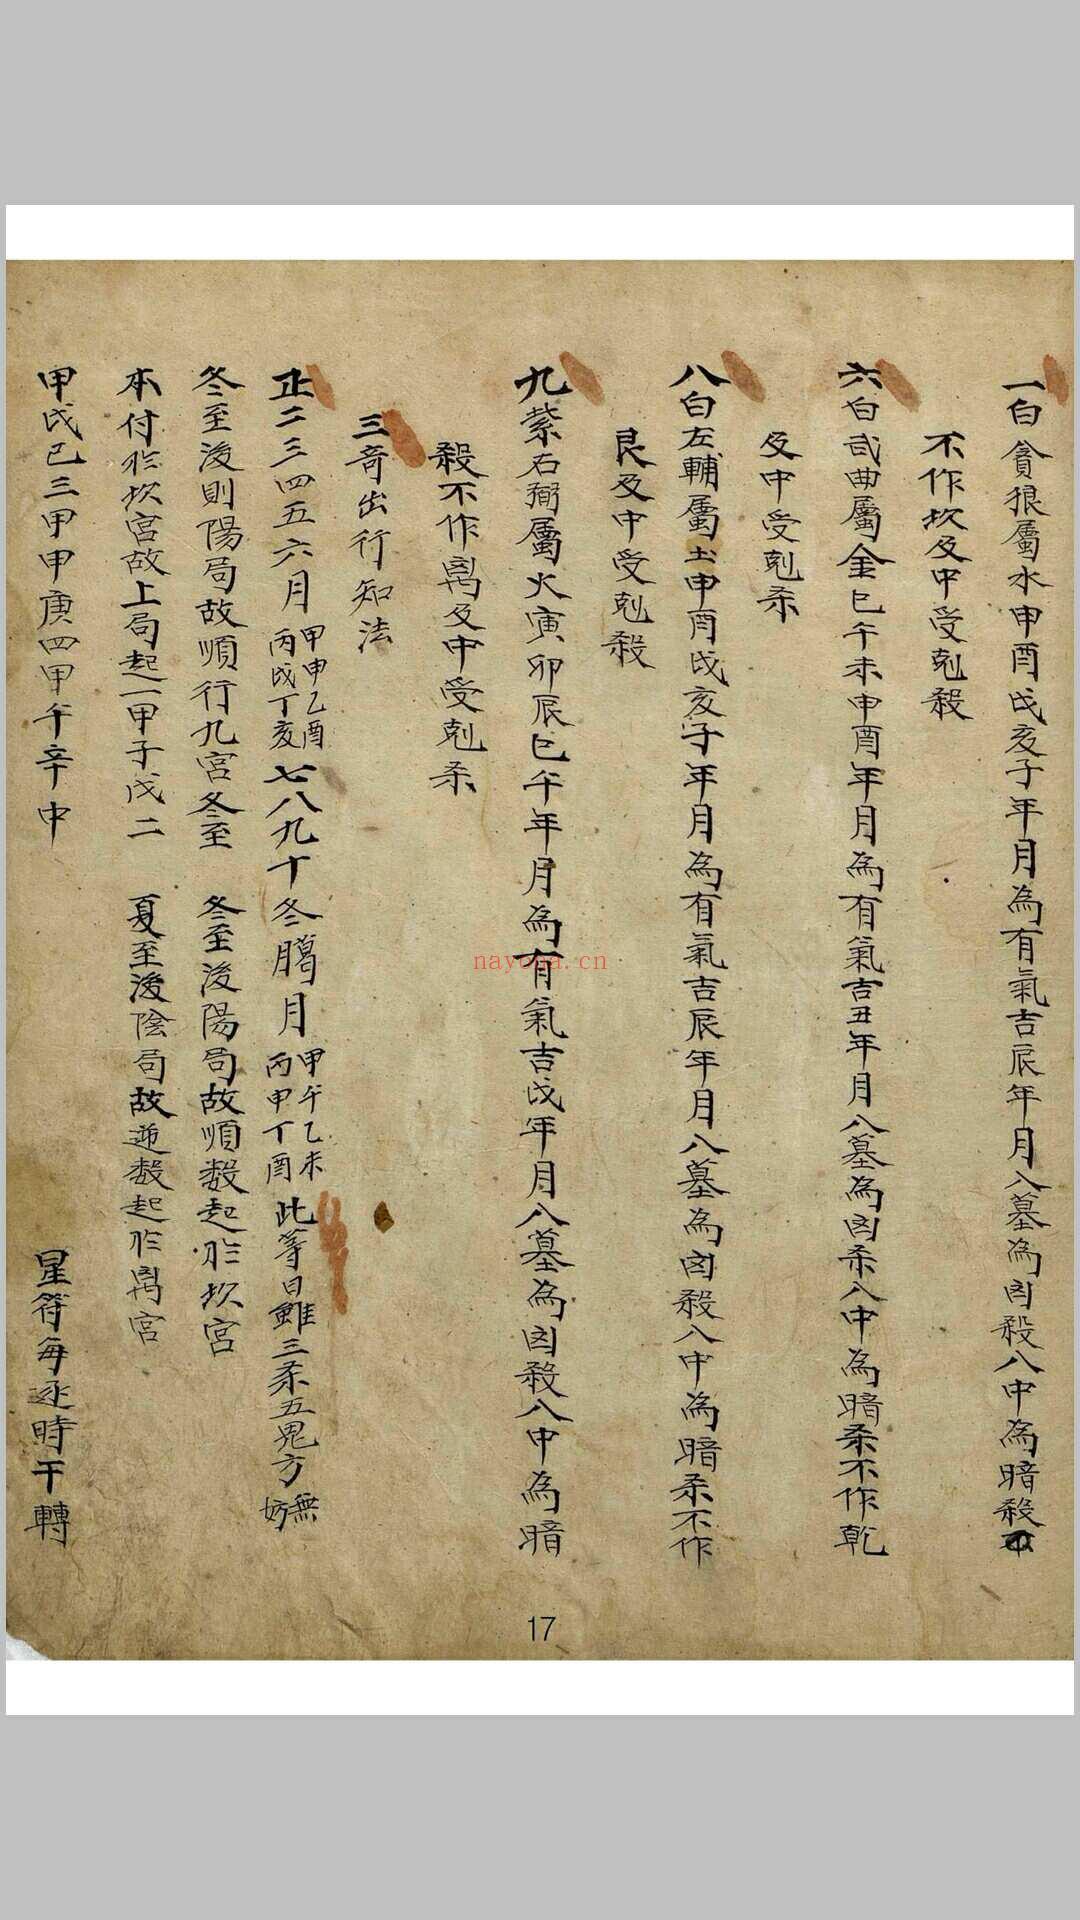 一白貪狼屬水申酉戌亥子年月為有氣吉辰年月入墓為凶殺入中為暗殺
不作坎及中受剋殺
六白武曲屬金巳午未申酉年月為有氣吉丑年月入墓為凶杀入中為暗杀不作乾
及中受剋杀
八白左輔屬土申酉戌亥子年月為有氣吉辰年月入墓為凶殺入中為暗杀不作
艮及中受剋殺
九紫右弼屬火寅卯辰巳午年月為有氣吉戌年月入墓為凶殺入中為暗
殺不作离及中受剋杀
三奇出行知法
正二三四五六月甲申乙酉丙戌丁亥七八九十冬臈月甲午乙未丙申丁酉此等日雖三杀五鬼方無妨
冬至後則陽局故順行九宮冬至 冬至後陽局故順数起於坎宮
本付於坎宮故上局起一甲子戊二 夏至後陰局故逆数起於离宮
甲戌己三甲申庚四甲午辛中 星符每逐時干轉
17
nayona.cn